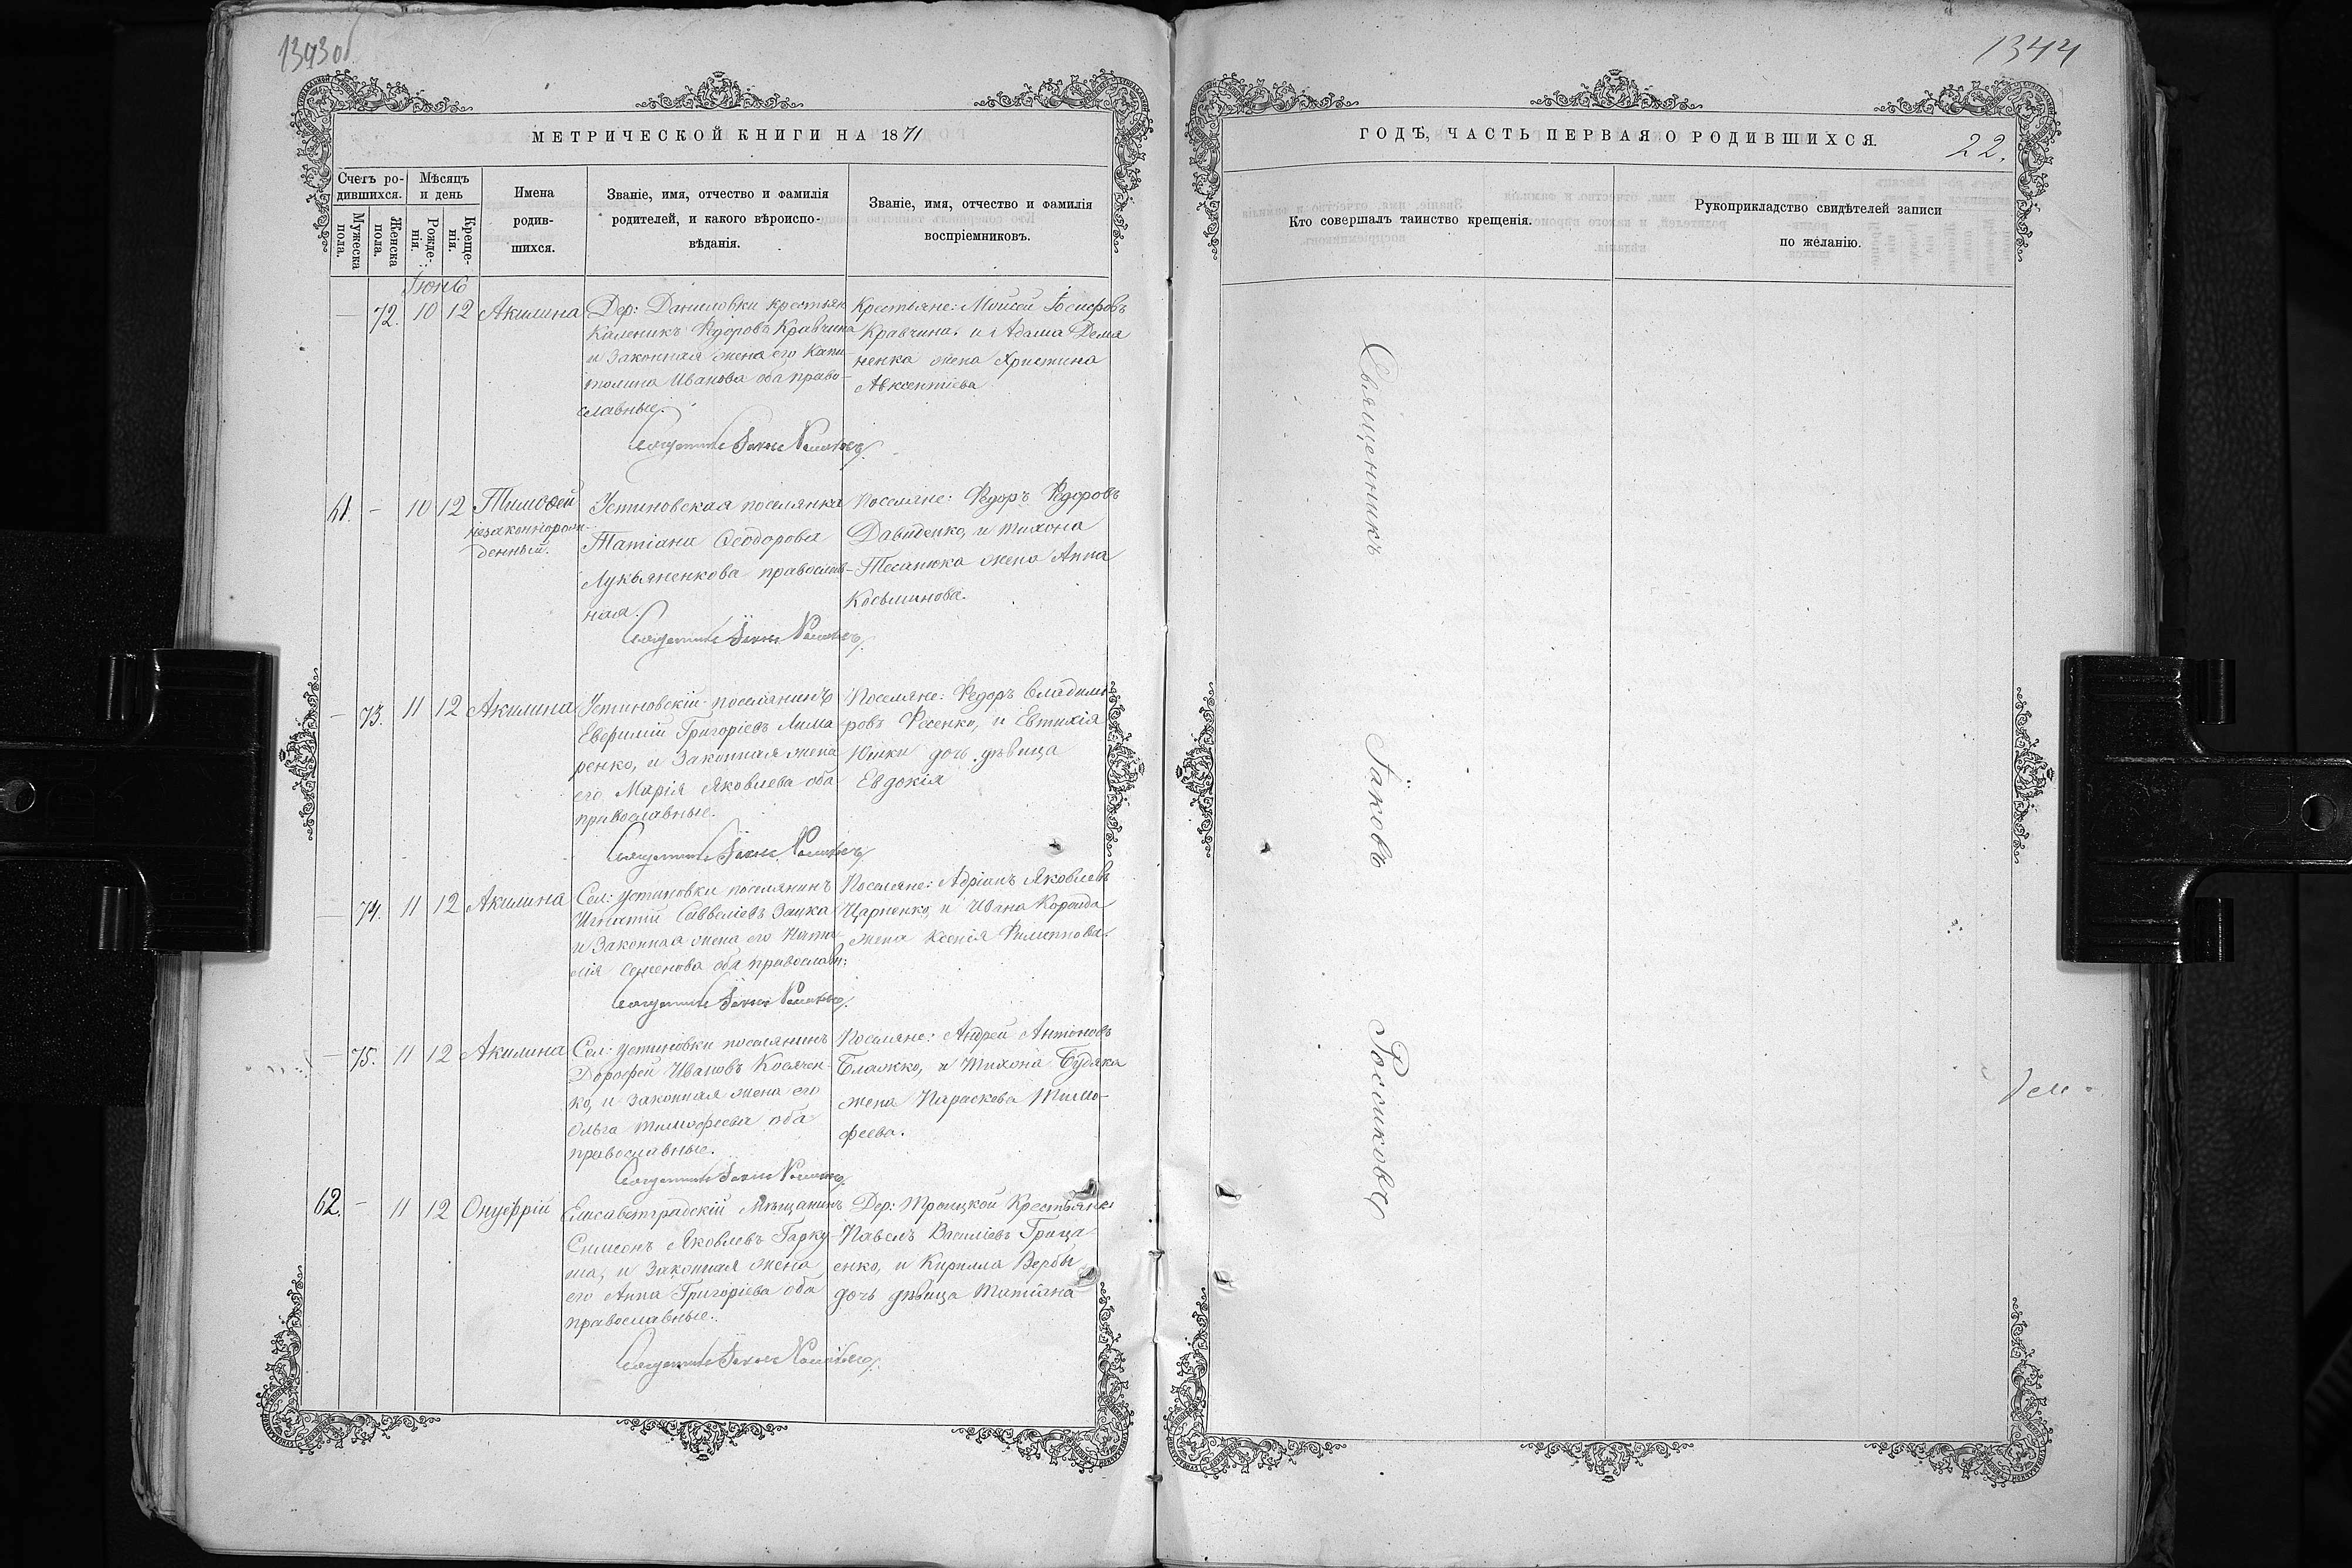 1343об
МЕТРИЧЕСКОЙ КНИГИ НА 1871
Счетъ ро-
дившихся.
Мѣсяцъ
и день
Мужеска
пола.
Женска
пола.
Рожде-
нія.
Креще-
нія.
Имена
родив-
шихся.
Званіе, имя, отчество и фамилія
родителей, и какого вѣроиспо-
вѣданія.
Званіе, имя, отчество и фамилія
воспріемниковъ.
— 72. 10 12 Акилина
Дер: Даниловки крестьян
Каленикъ Ѳедоровъ Кравчина
и законная жена его Капи-
толина Иванова оба право-
славные.
Крестьяне: Моисей Іосифовъ
Кравчина, и Адама Дема
ненка жена Христина
Авксентіева
61. — 10 12 Тимоѳей
незаконнорож-
денный.
Устиновская поселянка
Татіана Ѳеодорова
Лукьяненкова православ-
ная.
Поселяне: Ѳедоръ Ѳедоровъ
Давиденко, и Тихона
жена Анна
Косьминова.
— 73. 11 12 Акилина
Устиновскій поселянинъ
Григоріевъ Лима
ренко, и законная жена
его Марія Яковлева оба
православные.
Поселяне: Ѳедоръ Владими
ровъ Фесенко, и Евтихія
Юшки дочь дѣвица
Евдокія
— 74. 11 12 Акилина
Сел: Устиновки поселянинъ
Игнатій Савеліевъ Заика
и законная жена его Ната-
лія Семенова оба православ:
Поселяне: Адріанъ Яковлевъ
Царненко, и Ивана
жена Ксенія Филиппова.
— 75. 11 12 Акилина
Сел: Устиновки поселянинъ
Дорофей Ивановъ Косячен-
ко, и законная жена его
Ольга Тимофеева оба
православные.
Поселяне: Андрей Антоновъ
Блажко, и Тихона Будяка
жена Параскева Тимо-
феева.
62. — 11 12 Онуфрій
Елисаветградскій Мѣщанинъ
Симеонъ Яковлевъ Гарку-
ша, и законная жена
его Анна Григоріева оба
православные.
Дер: Троицкой Крестьяне
Павелъ Василіевъ Грица-
енко, и Кирилла Вербы
дочь дѣвица Татіана
1344
ГОДѢ, ЧАСТЬ ПЕРВАЯ О РОДИВШИХСЯ.
22.
Кто совершалъ таинство крещенія.
Рукоприкладство свидѣтелей записи
по желанію.
Священникъ Іаковъ